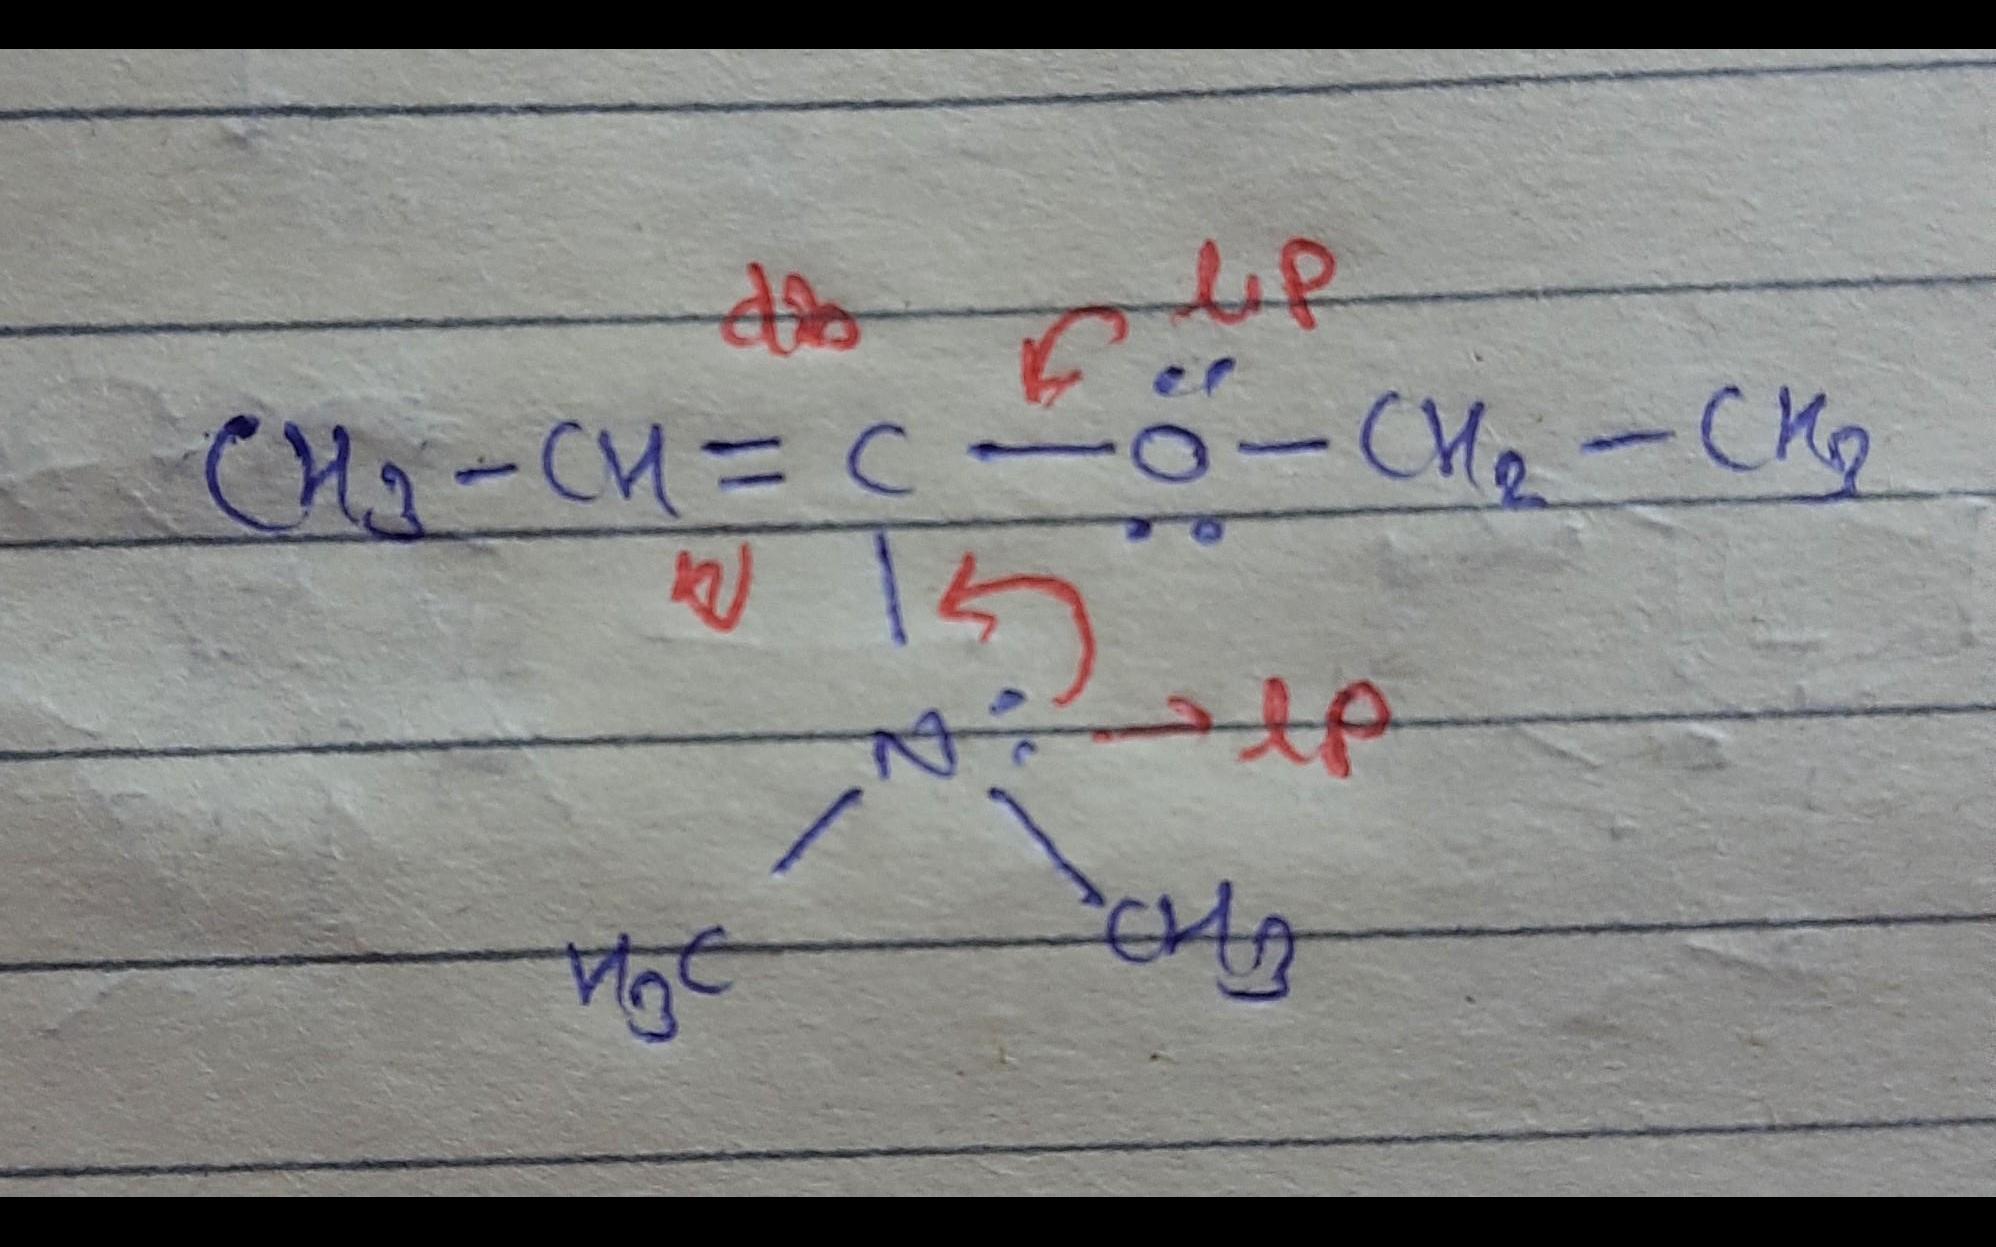 db lp
CH3-CH=C-O-CH2-CH3
N: → lp
H3C CH3